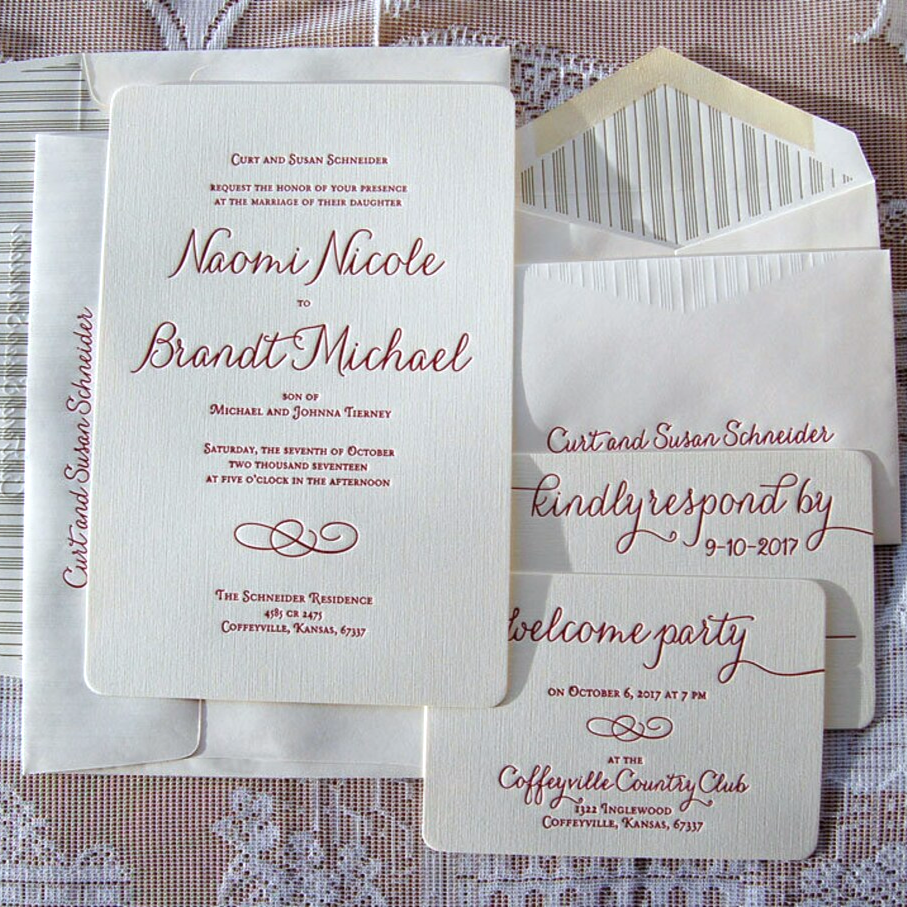 Curt and Susan Schneider
request the honor of your presence
at the marriage of their daughter
Naomi Nicole
to
Brandt Michael
son of
Michael and Johnna Tierney
Saturday, the seventh of October
two thousand seventeen
at five o'clock in the afternoon
The Schneider Residence
4585 CR 2475
Coffeyville, Kansas, 67337
Curt and Susan Schneider
Curt and Susan Schneider
kindly respond by
9-10-2017
welcome party
on October 6, 2017 at 7 pm
at the
Coffeyville Country Club
1322 Inglewood
Coffeyville, Kansas, 67337